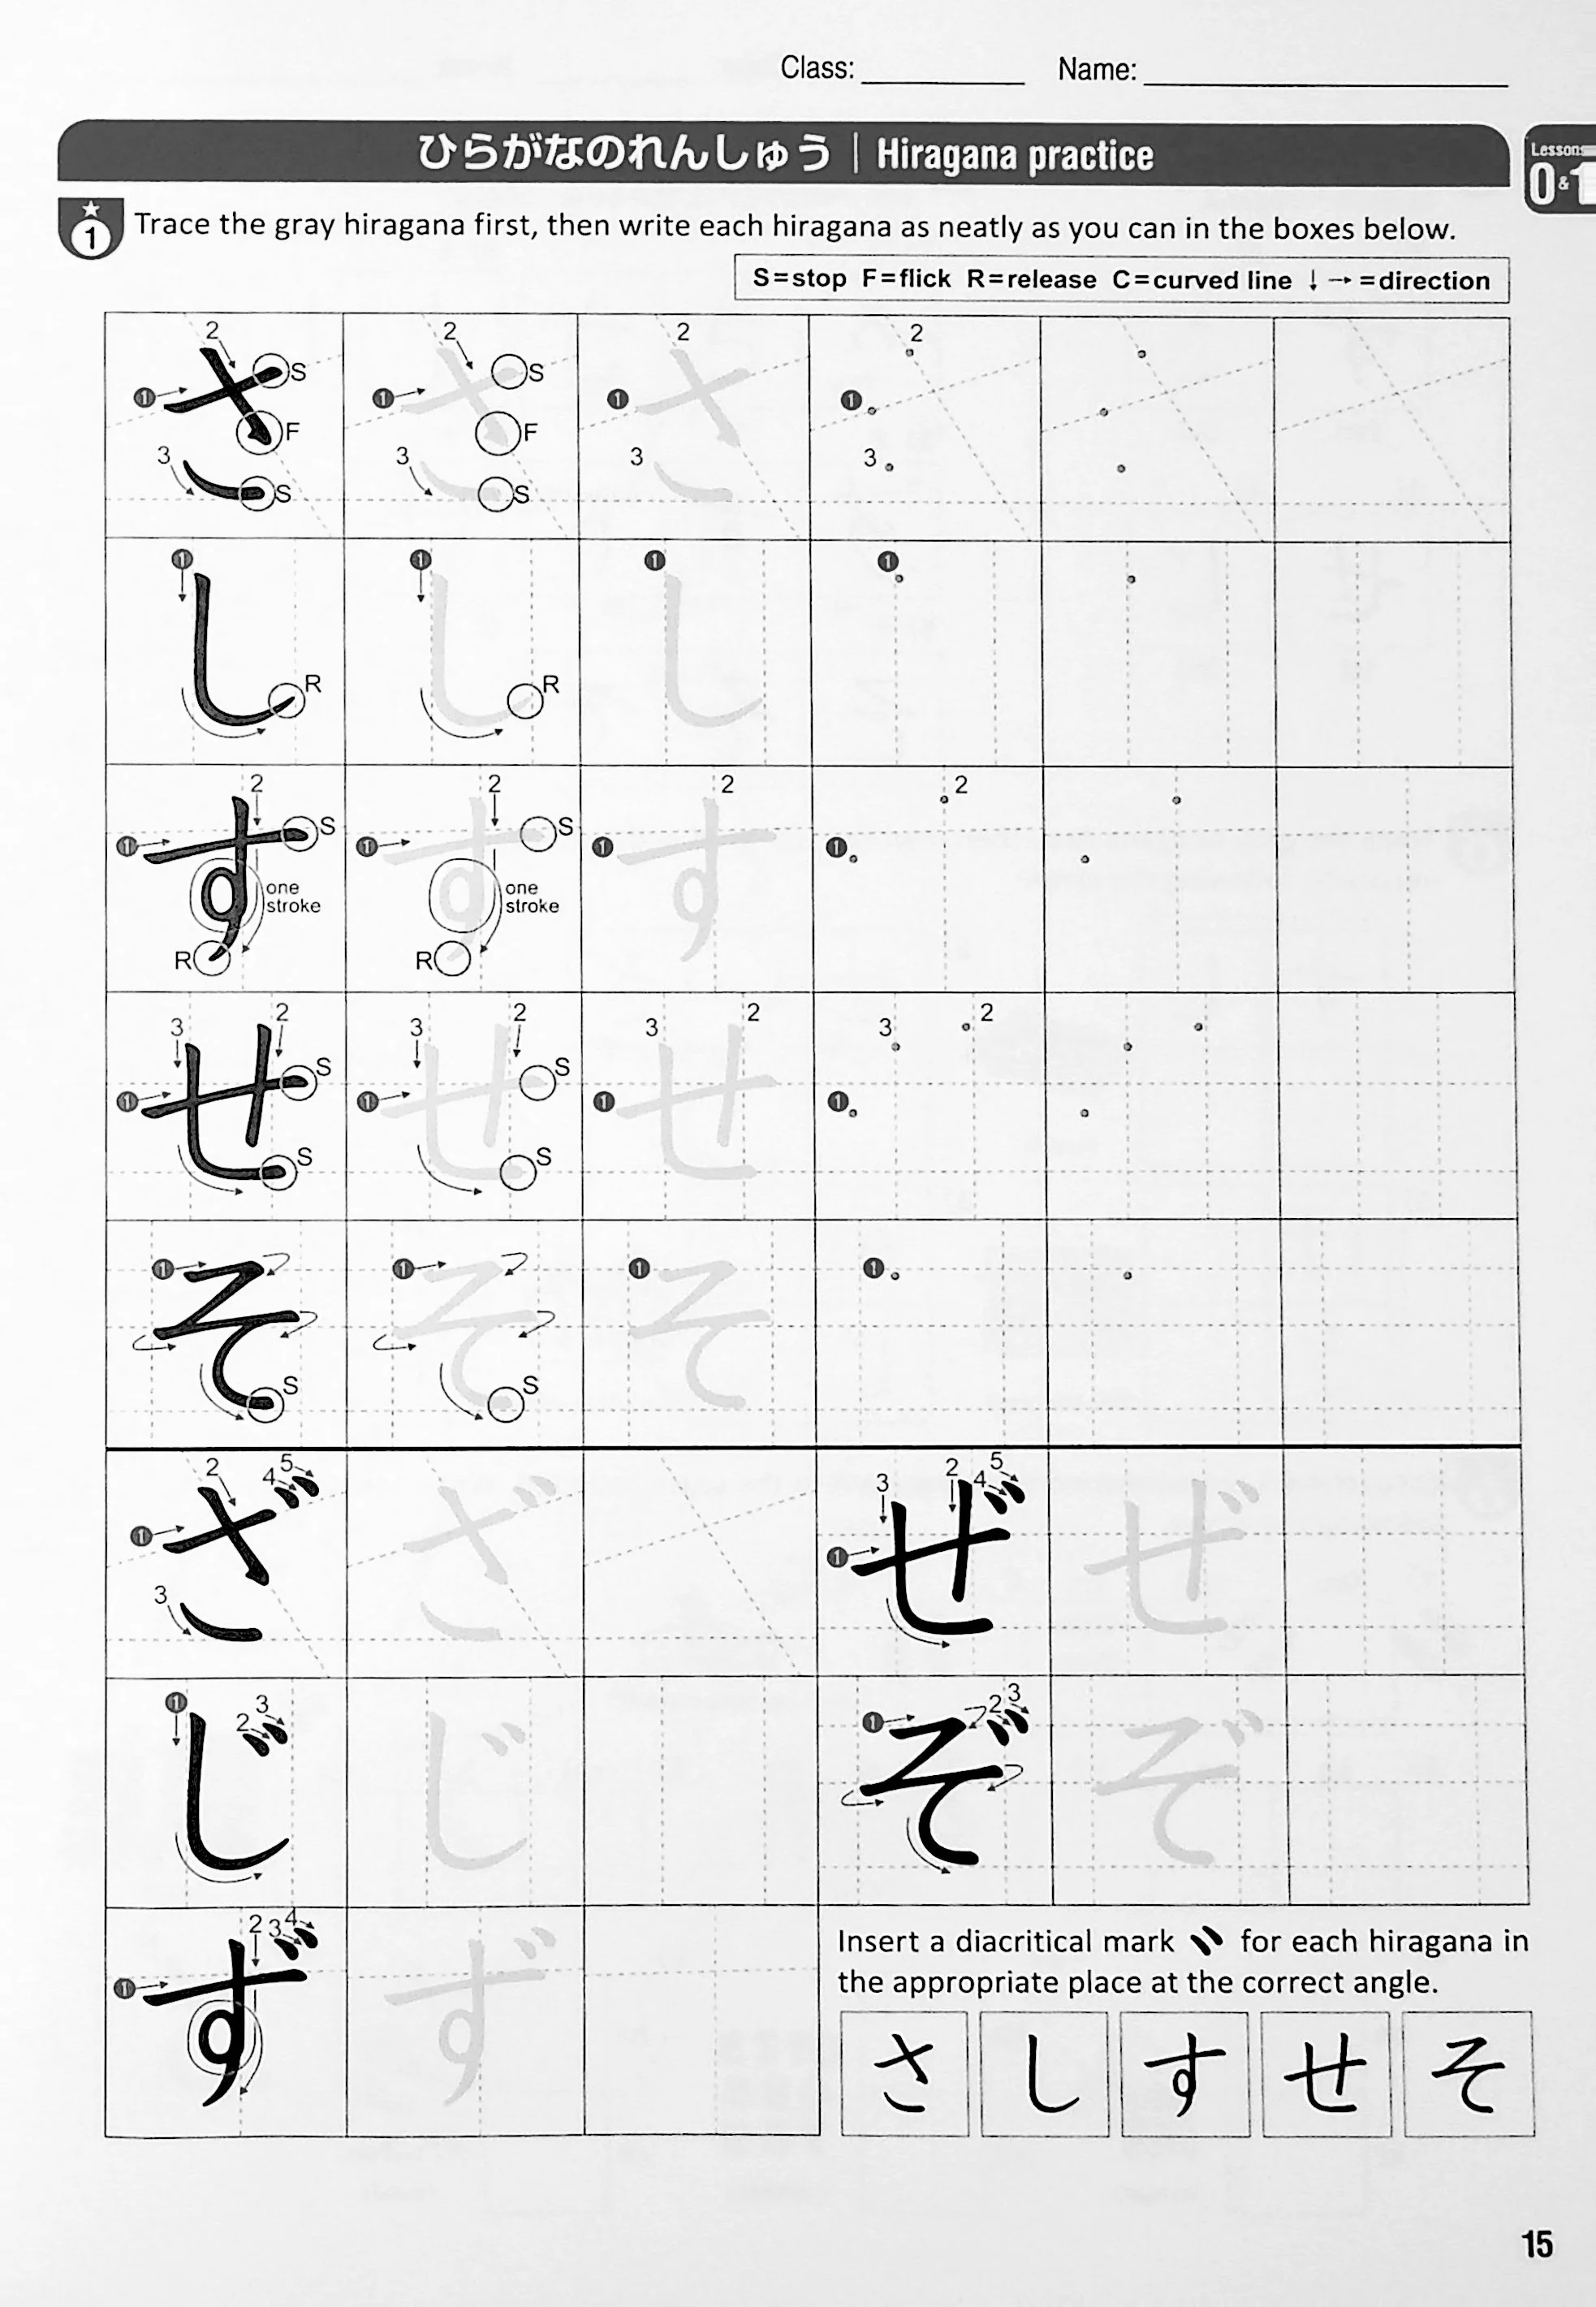 Class: Name:
ひらがなのれんしゅう | Hiragana practice
Lessons
0&1
1 Trace the gray hiragana first, then write each hiragana as neatly as you can in the boxes below.
S=stop F=flick R=release C=curved line ↓ → =direction
さ 1 2 3 S F S さ 1 2 3 S F S さ 1 2 3 1 2 3
し 1 R し 1 R し 1 1
す 1 2 S one stroke R す 1 2 S one stroke R す 1 2 1 2
せ 1 2 3 S S せ 1 2 3 S S せ 1 2 3 1 2 3
そ 1 S そ 1 S そ 1 1
ざ 1 2 3 4 5 ざ ぜ 1 2 3 4 5 ぜ
じ 1 2 3 じ ぞ 1 2 3 ぞ
ず 1 2 3 4 ず
Insert a diacritical mark ゛ for each hiragana in
the appropriate place at the correct angle.
さ し す せ そ
15